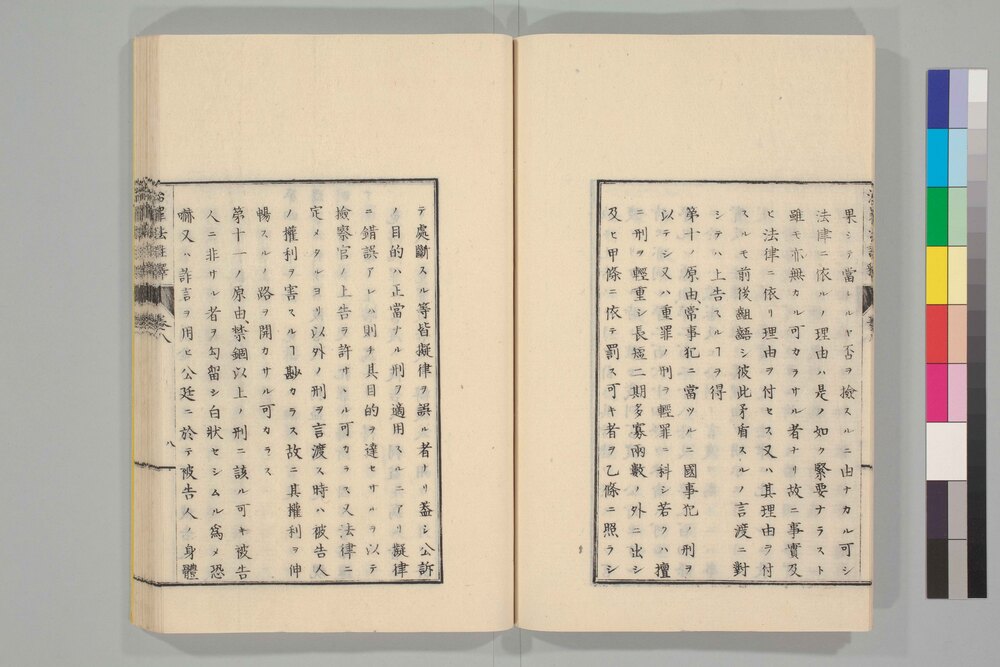 果シテ當レルヤ否ヲ撿スルニ由ナカル可シ
法律ニ依ルノ理由ハ是ノ如ク緊要ナラスト
雖モ亦無カル可カラサル者ナリ故ニ事實及
ヒ法律ニ依リ理由ヲ付セス又ハ其理由ヲ付
スルモ前後齟齬シ彼此矛盾スルノ言渡ニ對
シテハ上告スルヿヲ得
第十ノ原由、常事犯ニ當ツルニ國事犯ノ刑ヲ
以テシ又ハ重罪ノ刑ヲ輕罪ニ科シ若クハ擅
ニ刑ヲ輕重シ長短二期多寡兩數ノ外ニ出シ
及ヒ甲條ニ依テ罰ス可キ者ヲ乙條ニ照ラシ
テ處斷スル等皆擬律ヲ誤ル者ナリ蓋シ公訴
ノ目的ハ正當ナル刑ヲ適用スルニアリ擬律
ニ錯誤アレハ則チ其目的ヲ達セサルヲ以テ
撿察官ノ上告ヲ許サヽル可カラス又法律ニ
定メタルヨリ以外ノ刑ヲ言渡ス時ハ被告人
ノ權利ヲ害スルヿ尠カラス故ニ其權利ヲ伸
暢スルノ路ヲ開カサル可カラス
第十一ノ原由禁錮以上ノ刑ニ該ル可キ被告
人ニ非サル者ヲ勾留シ白狀セシムル爲メ恐
嚇又ハ詐言ヲ用ヒ公廷ニ於テ被告人ノ身體
治罪法註釋 卷八
八